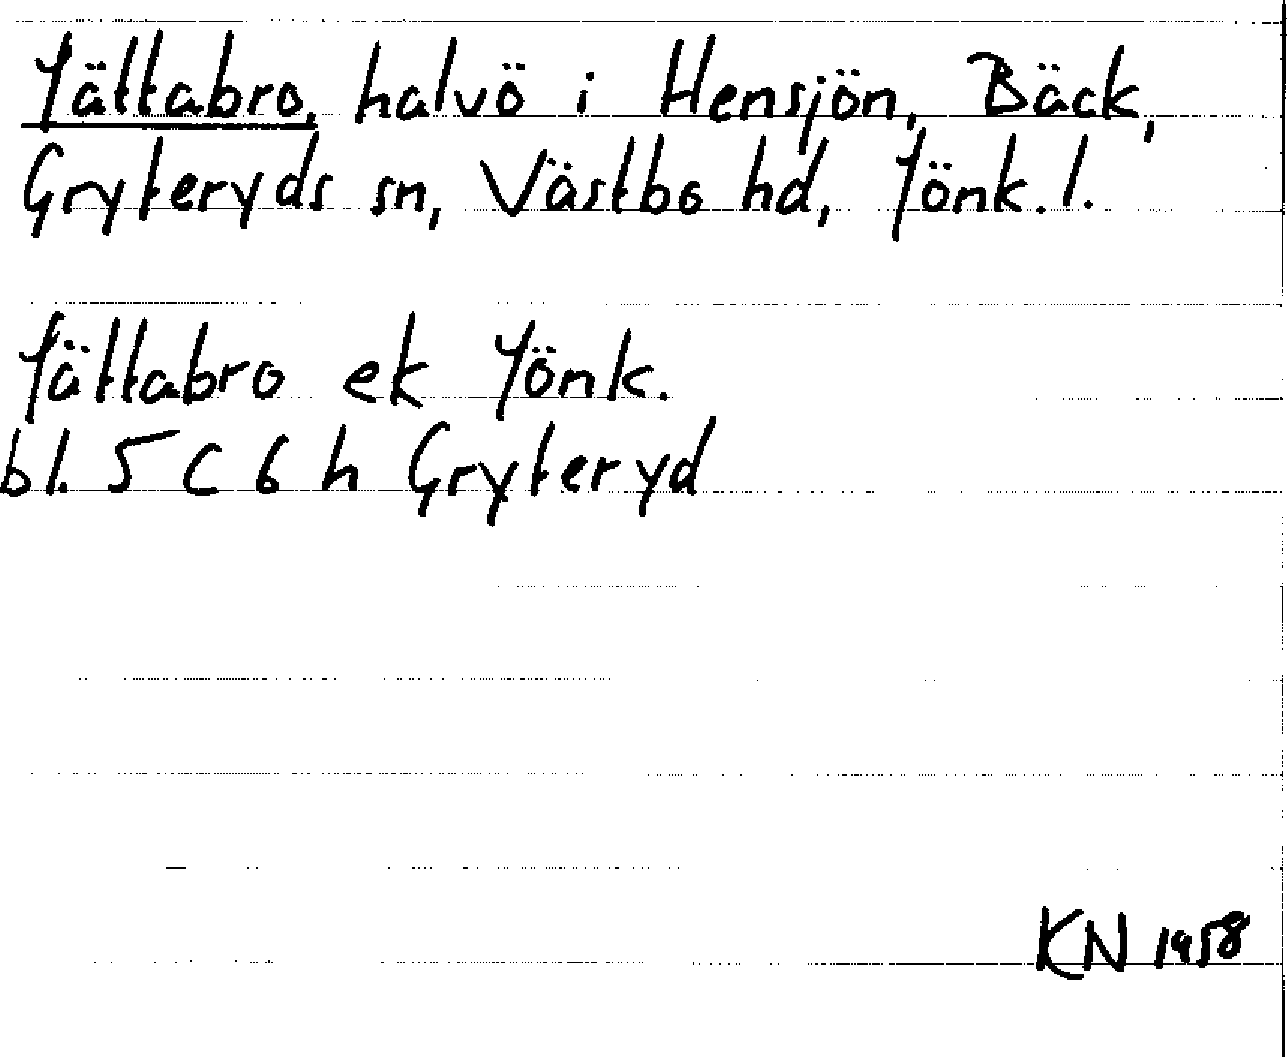 Jättabro, halvö i Hensjön, Bäck,
Gryteryds sn, Västbo hd, Jönk.l.
Jättabro ek Jönk.
bl. 5 C 6 h Gryteryd
KN 1958